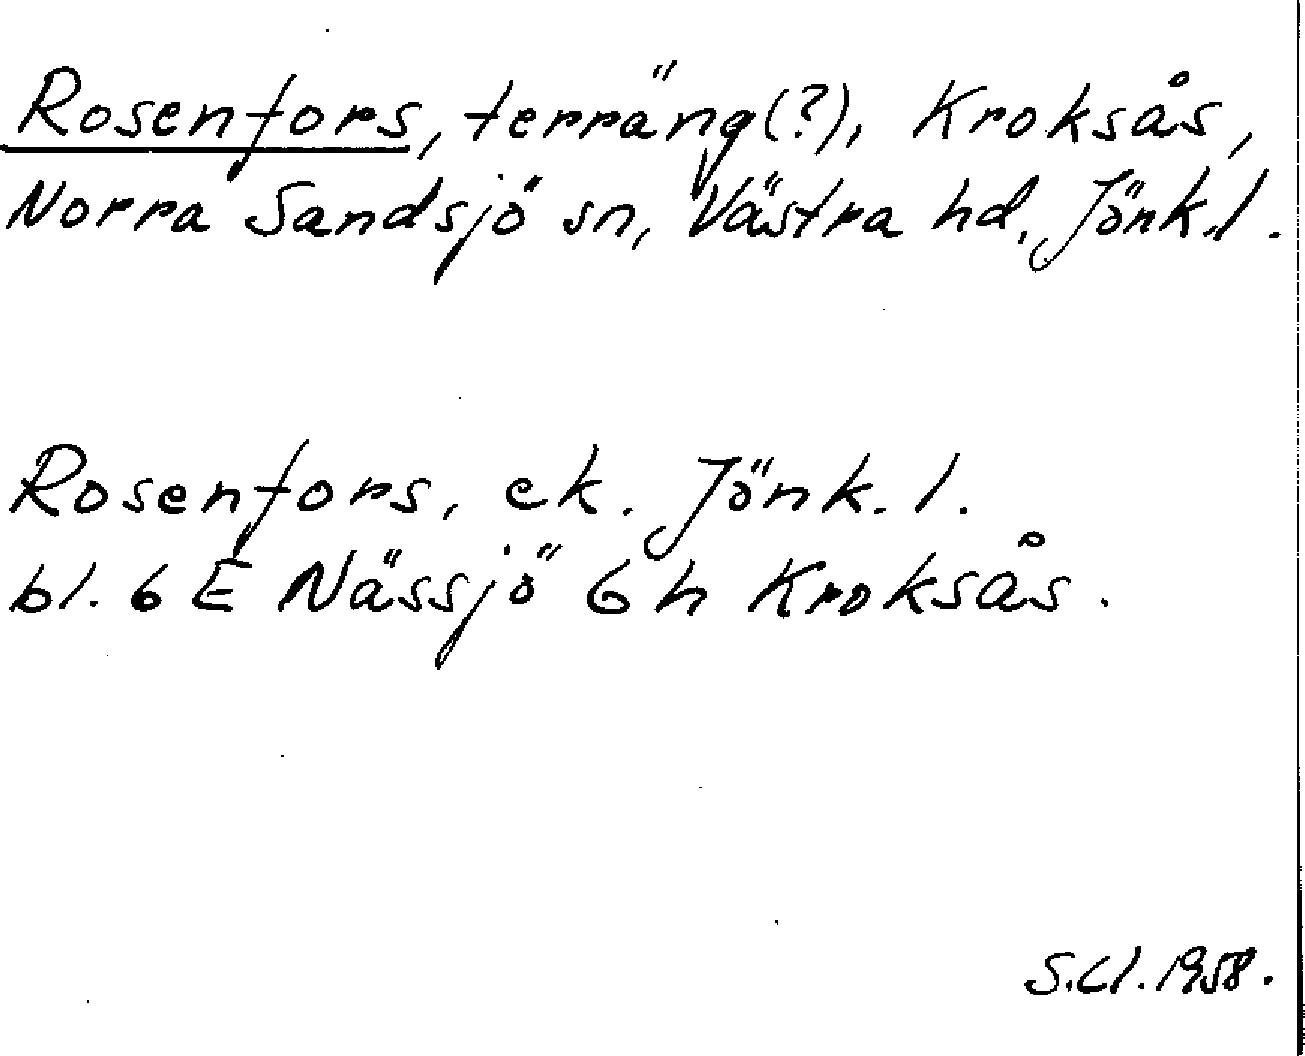 Rosenfors, terräng(?), Kroksås,
Norra Sandsjö sn, Västra hd, Jönk.l.
Rosenfors, ek. Jönk. l.
bl. 6 E Nässjö 6 h Kroksås.
S.Cl. 1958.